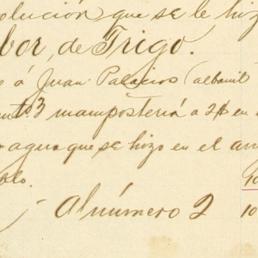 olución que se le hizo
bor, de Trigo.
e á Juan Palacios (albañil
mampostería a 2$ en
agua que se hizo en el an
lo.
Al número 2 10